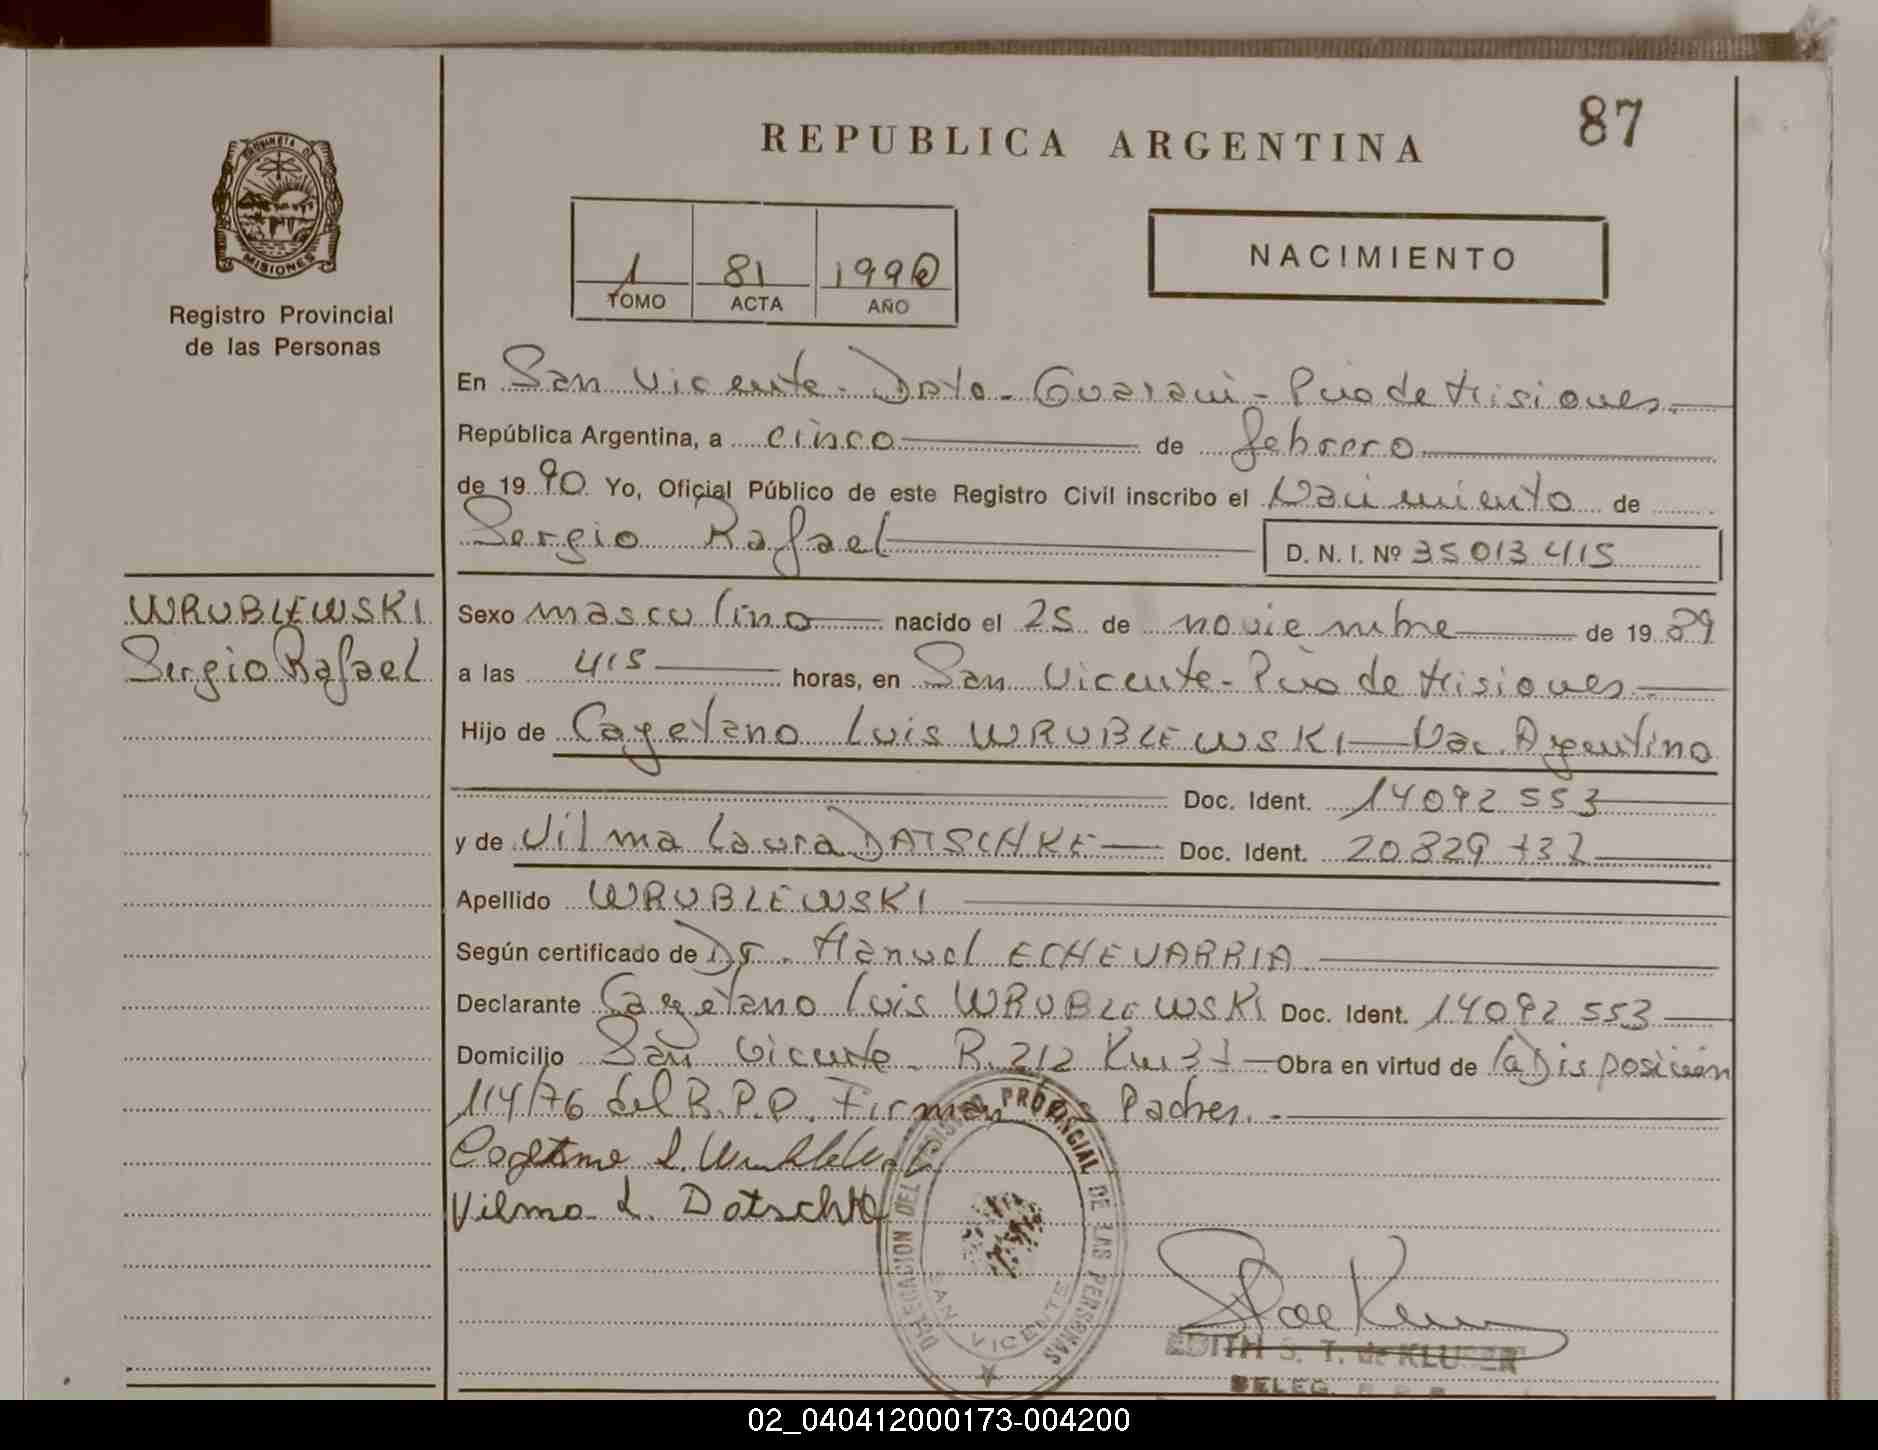 87
REPUBLICA ARGENTINA
PROVINCIA DE
MISIONES
Registro Provincial
de las Personas
1 81 1990
TOMO ACTA AÑO
NACIMIENTO
En San Vicente - Dpto - Guaraní - Pcia de Misiones.
República Argentina, a cinco de febrero
de 1990 Yo, Oficial Público de este Registro Civil inscribo el Nacimiento de
Sergio Rafael D. N. I. Nº 35013415
WRUBLEWSKI
Sergio Rafael
Sexo masculino nacido el 25 de noviembre de 1989
a las 415 horas, en San Vicente - Pcia de Misiones
Hijo de Cayetano Luis WRUBLEWSKI — Nac. Argentino
Doc. Ident. 14092553
y de Vilma Laura DATSCHKE Doc. Ident. 20829737
Apellido WRUBLEWSKI
Según certificado de Dr. Manuel ECHEVARRIA
Declarante Cayetano Luis WRUBLEWSKI Doc. Ident. 14092553
Domicilio San Vicente. R. 212 Km 37 Obra en virtud de la Disposición
114/76 del R.P.P. Firman Padres.
Vilma L. Datschke
DELEGACION DEL REGISTRO PROVINCIAL DE LAS PERSONAS
SAN VICENTE
EDITH S. T. de KLUSER
DELEG.
02_040412000173-004200